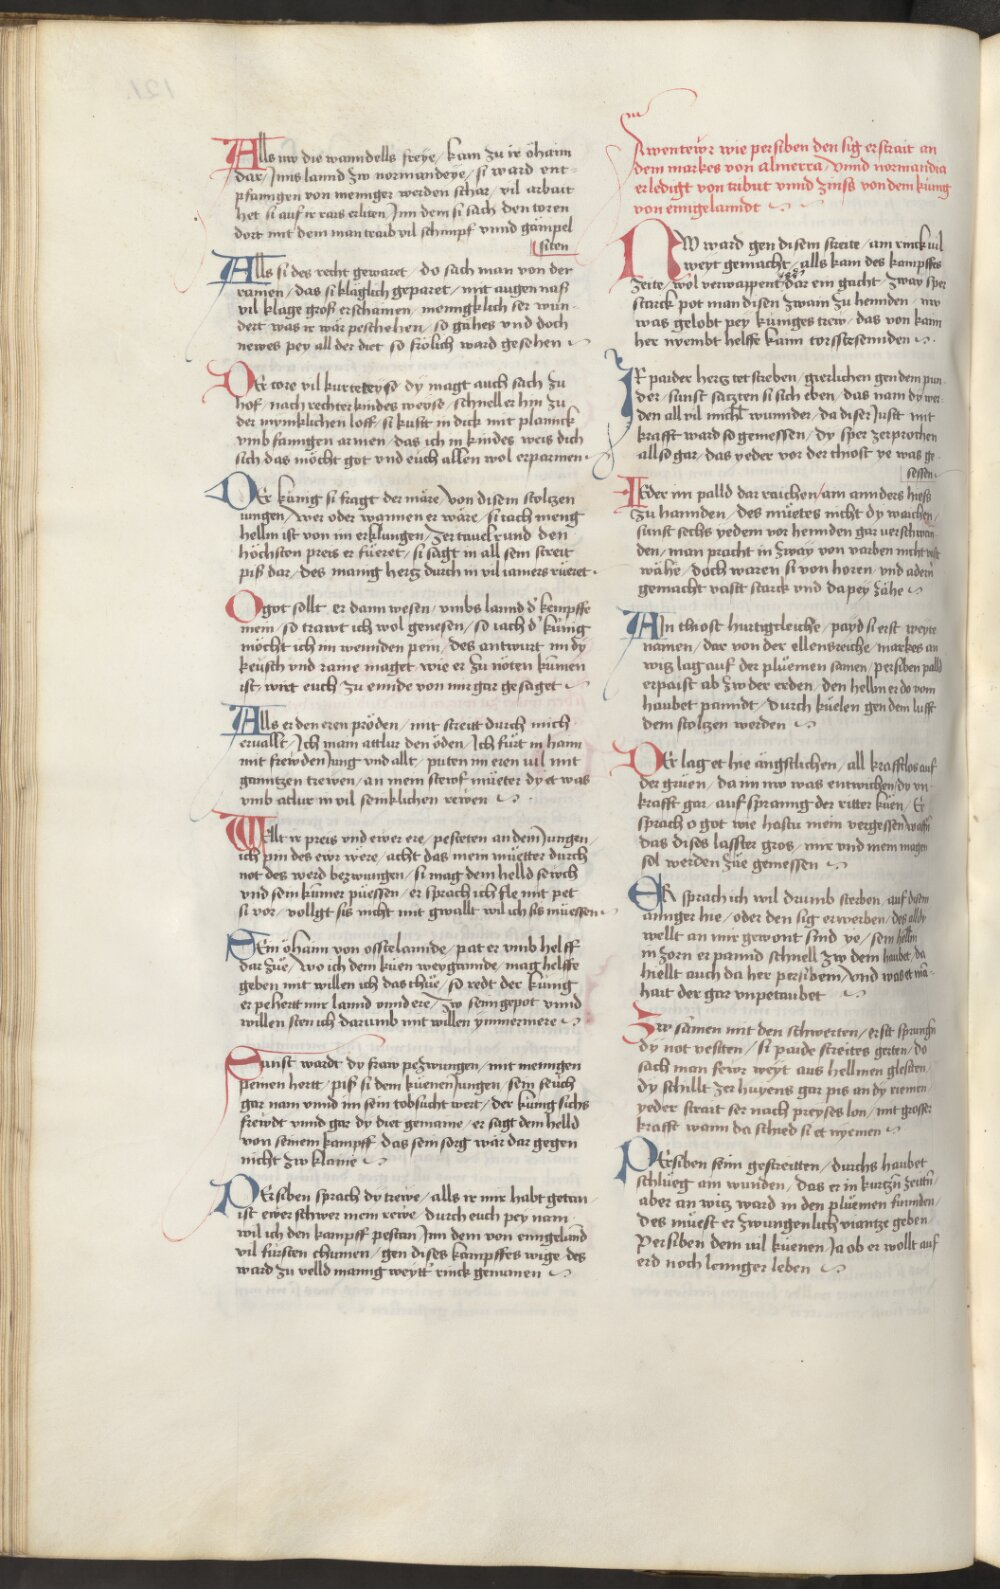 Alls nw die wanndells freye / kam zu ir öhaim
dar / Inns lannd zw normandeye / si ward ent-
pfanngen von meniger werden schar / vil arbait
het si auf ir rais erliten / Inn dem si sach den toren
dort mit dem man traib vil schimpf vnnd gämpel
siten
Alls si des recht gewaret / do sach man von der
ramen / das si kläglich geparet / mit augen naß
vil klage groß erschamen / menngklich ser wun-
dert was ir wär peschehen / so gähes vnd doch
newes pey all der diet so frölich ward gesehen
Der tore vil kurteteyse / dy magt auch sach zu
hof / nach rechter kindes weyse / schnell er hin zu
der mynklichen loff / si kust in dick mit plannck
vmbfanngen armen / das ich in kindes weis dich
sich das möcht got vnd euch allen wol erparmen
Der künig si fragt der märe / von disem stoltzen
iungen / wer oder wannen er wäre / si iach meng
hellm ist von im erklungen / zer tauelrund den
höchsten preis er füeret / si sagt in all sein streit
piß dar / des manig hertz durch in vil iamers rüeret
O got sollt er dann wesen / vmbs lannd d' kempffe
mein / so trawt ich wol genesen / so iach d' künig
möcht ich im wenden pein / des antwurt im dy
keusch vnd raine maget / wie er zu nöten kumen
ist / wirt euch zu ennde von mir gar gesaget
Alls er den eren pröden / mit streitt durch mich
ervallt / Ich main attlur den öden / Ich fürt in haim
mit frewden Iung vnd allt / puten im eren vil mit
ganntzen trewen / an mein stewf müeter dy et was
vmb atlur in vil senklichen rewen
Wellt ir preis vnd ewer ere / pesteten an dem Iungen
ich pin des ewr were / acht das mein müetter durch
not des werd bezwungen / si mag dem helld seuch
vnd sein kumer püessen / er sprach ich fle mit pet
si vor / vollgt sis nicht mit gwallt wil ich sis müessen
Dein öhaim von ostelannde / pat er vmb helff
dar züe / wo ich dem küen weygannde / mag helffe
geben mit willen ich das thüe / so redt der künig
er pehertt mir lannd vnnd ere / zw seim gepot vnnd
willen sten ich darumb mit willen ymmermere
Sunst wardt dy fraw pezwungen / mit menngen
peinen hertt / piß si dem küenen Iungen / sein seuch
gar nam vnnd im sein tobsucht wert / der künig sichs
frewdt vnnd gar dy diet gemaine / er sagt dem helld
von seinem kampff das sein sorg wär dar gegen
nicht zw klaine
Persiben sprach dy trewe / alls ir mir habt getan
ist ewer schwer mein rewe / durch euch pey nam
wil ich den kampff pestan / Inn dem von enngelannd
vil fürsten chumen / gen dises kampffes wige des
ward zu velld manig weytt' rinck genumen
Awentewr wie persiben den sig erstrait an
dem markes von almerra / vnnd normandia
erledigt von tribut vnnd zinss von dem künig
von enngelanndt
NW ward gen disem streite / am rinck vil
weyt gemacht / alls kam des kampffes
zeite / wol verwappent dar ein gacht / zway sper
starck pot man disen zwain zu hennden / nw
was gelobt pey küniges trew / das von kain
her nyembt helffe kain torsst senden
Ir paider hertz tet streben / gierlichen gen dem pun
der / sunst satzten si sich eben / das nam dy wer
den all vil michl wunnder / da diser Iust mit
krafft ward so gemessen / dy sper zerprochen
allso gar / das yeder vor der thiost ye was ge
sessen
Ieder im palld dar raichen / am annders hieß
zu hannden / des müetes nicht dy waichen
sunst sechs yedem vor hennden gar verschwan
den / man pracht in zway von varben nicht
wähe / doch waren si von horen / vnd adern
gemacht vasst starck vnd dapey zähe
Ain thiost hurtigkleiche / payd si erst weyte
namen / dar von der ellennsreiche / markes an
wig lag auf der plüemen samen / persiben palld
erpaist ab zw der erden / den hellm er do vom
haubet panndt / durch küelen gen dem lufft
dem stoltzen werden
Der lag et hie ängstlichen / all krafftlos auf
der grüen / da im nw was entwichen / dy vn
krafft gar / auf sprannng der ritter küen / Er
sprach o got wie hastu mein vergessen / wafn
das dises lasster gros / mir vnd mein magen
sol werden züe gemessen
Er sprach ich wil drumb sterben / auf disem
annger hie / oder den sig erwerben / des alldy
wellt an mir gewont sind ye / sein hellm
in zorn er pannd schnell zw dem haubet / da
hiellt auch da her persiben / vnd was et man
hait der gar vnpetaubet
Zw samen mit den schwerten / erst sprungen
dy not vesten / si paide streites gerten / do
sach man fewr weyt aus hellmen glesten
dy schillt zerhuyens gar pis an dy riemen
yeder strait ser nach preyses lon / mit grosser
krafft wann da schied si et nyemen
Persiben sein gestreitten / durchs haubet
schlüeg ain wunden / das er in kurtzn zeitn
aber an wig ward in den plüemen funnden
Des müest er zwungenlich viantze geben
Persiben dem vil küenen / Ia ob er wollt auf
erd noch lennger leben